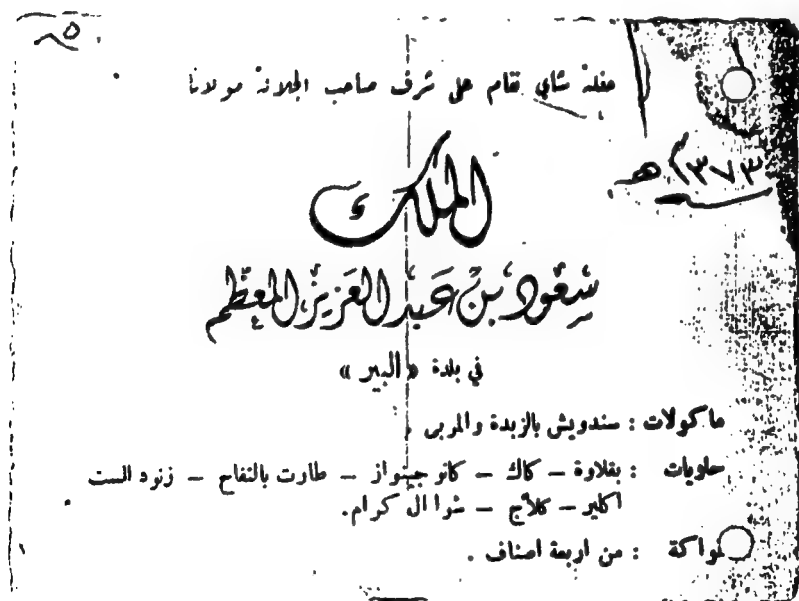 ٥
حفلة شاي تقام على شرف صاحب الجلالة مولانا
١٣٧٣ هـ
الملك
سعود بن عبد العزيز المعظم
في بلدة « البير »
ماكولات : سندويش بالزبدة والمربى
حلويات : بقلاوة – كاك – كاتو جينواز – طارت بالتفاح – زنود الست
اكلير – كلاج – شوا الا كرام.
فواكة : من اربعة اصناف .